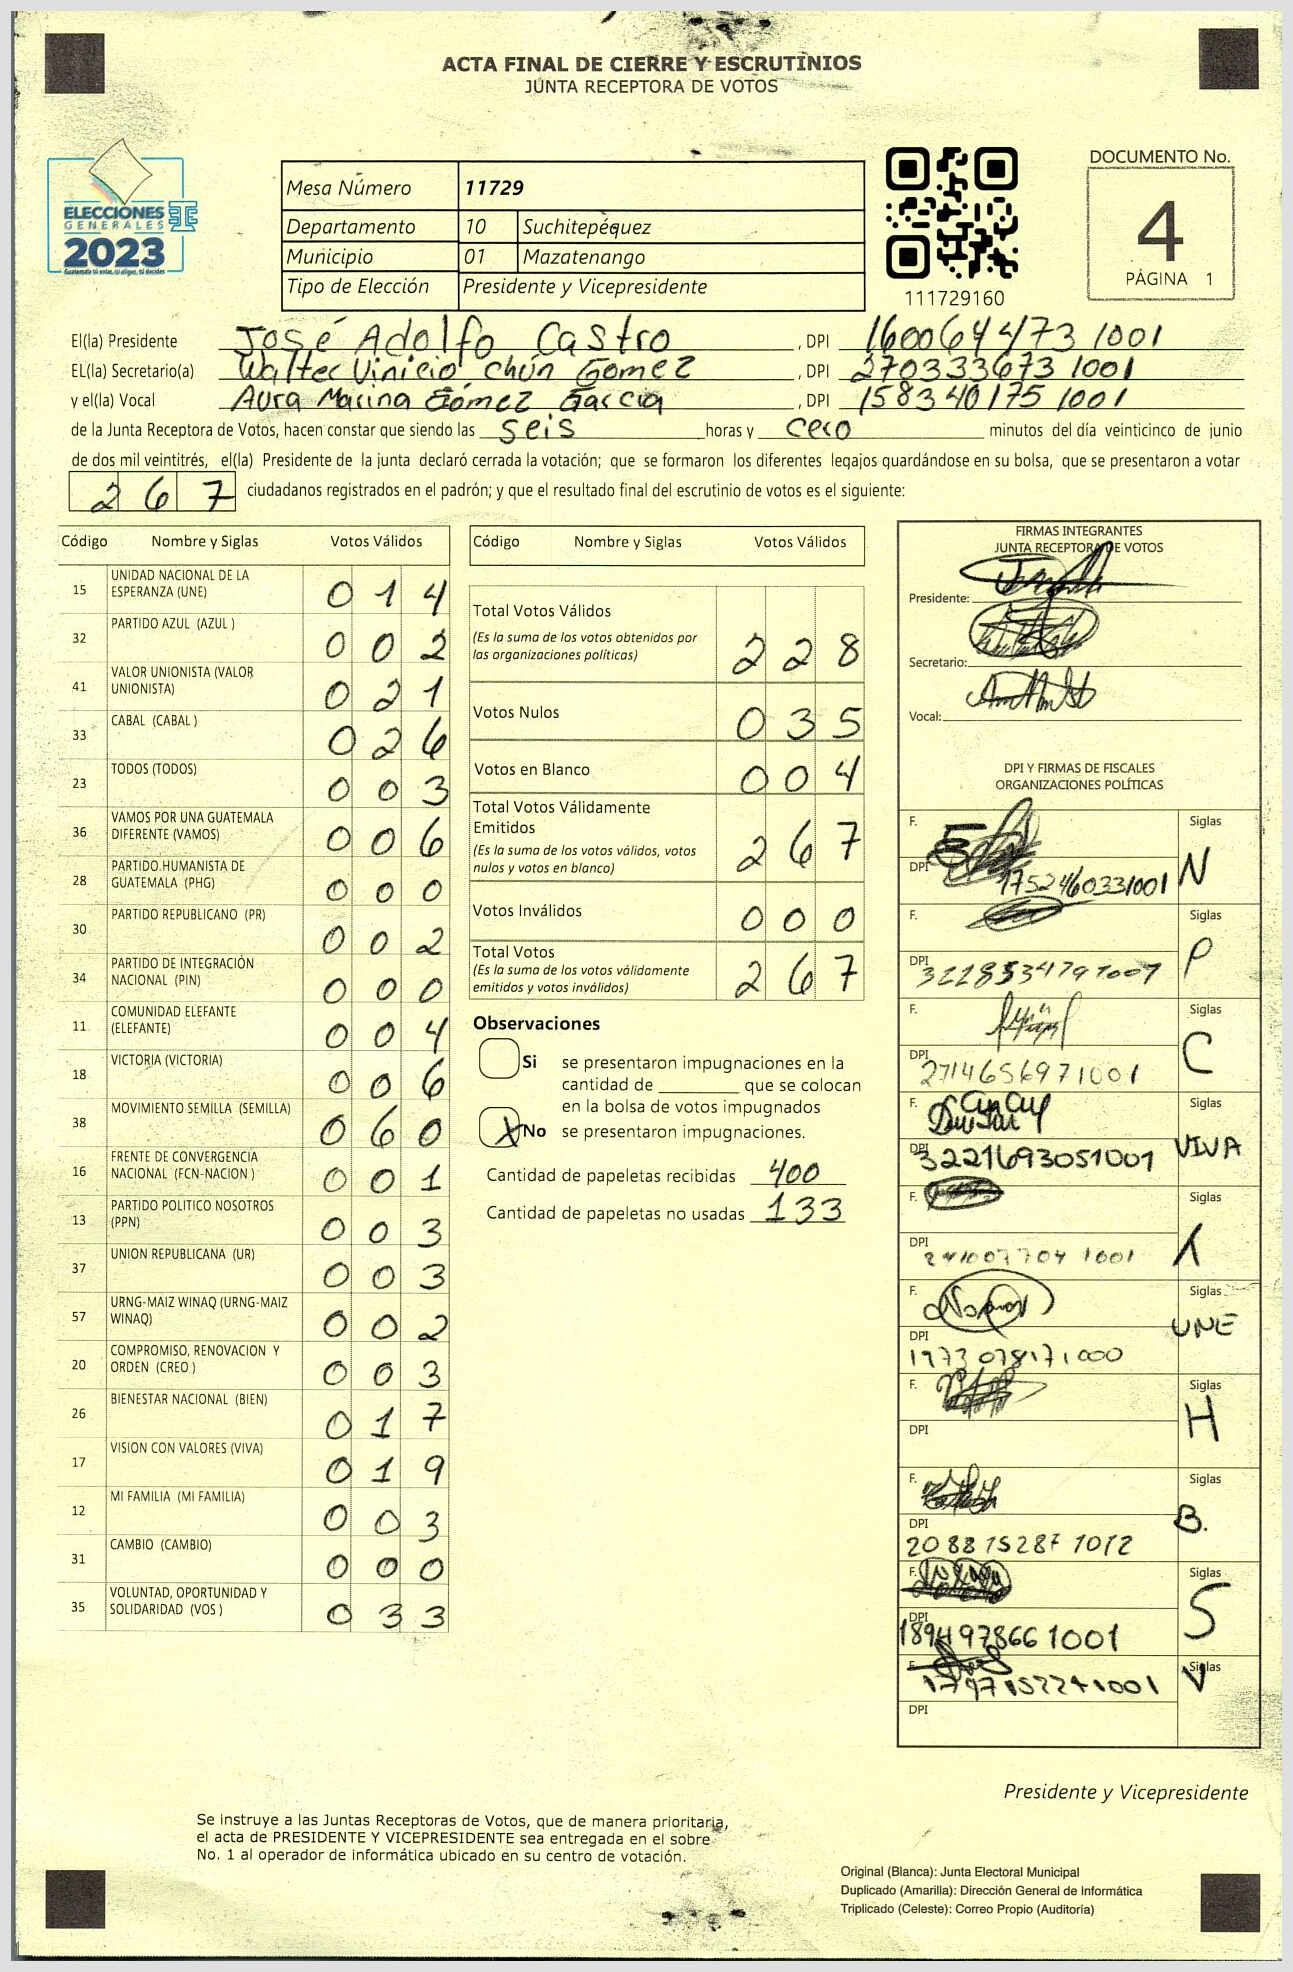 ACTA FINAL DE CIERRE Y ESCRUTINIOS
JUNTA RECEPTORA DE VOTOS
ELECCIONES
GENERALES
2023
Guatemala tú eres, tú eliges, tú decides
Mesa Número 11729
Departamento 10 Suchitepéquez
Municipio 01 Mazatenango
Tipo de Elección Presidente y Vicepresidente
111729160
DOCUMENTO No.
4
PÁGINA 1
El(la) Presidente José Adolfo Castro , DPI 160064473 1001
EL(la) Secretario(a) Walter Vinicio Chún Gomez , DPI 270333673 1001
y el(la) Vocal Aura Marina Gómez Garcia , DPI 158340175 1001
de la Junta Receptora de Votos, hacen constar que siendo las seis horas y cero minutos del día veinticinco de junio
de dos mil veintitrés, el(la) Presidente de la junta declaró cerrada la votación; que se formaron los diferentes legajos guardándose en su bolsa, que se presentaron a votar
267 ciudadanos registrados en el padrón; y que el resultado final del escrutinio de votos es el siguiente:
Código Nombre y Siglas Votos Válidos
15 UNIDAD NACIONAL DE LA ESPERANZA (UNE) 014
32 PARTIDO AZUL (AZUL ) 002
41 VALOR UNIONISTA (VALOR UNIONISTA) 021
33 CABAL (CABAL ) 026
23 TODOS (TODOS) 003
36 VAMOS POR UNA GUATEMALA DIFERENTE (VAMOS) 006
28 PARTIDO HUMANISTA DE GUATEMALA (PHG) 000
30 PARTIDO REPUBLICANO (PR) 002
34 PARTIDO DE INTEGRACIÓN NACIONAL (PIN) 000
11 COMUNIDAD ELEFANTE (ELEFANTE) 004
18 VICTORIA (VICTORIA) 006
38 MOVIMIENTO SEMILLA (SEMILLA) 060
16 FRENTE DE CONVERGENCIA NACIONAL (FCN-NACION ) 001
13 PARTIDO POLITICO NOSOTROS (PPN) 003
37 UNION REPUBLICANA (UR) 003
57 URNG-MAIZ WINAQ (URNG-MAIZ WINAQ) 002
20 COMPROMISO, RENOVACION Y ORDEN (CREO ) 003
26 BIENESTAR NACIONAL (BIEN) 017
17 VISION CON VALORES (VIVA) 019
12 MI FAMILIA (MI FAMILIA) 003
31 CAMBIO (CAMBIO) 000
35 VOLUNTAD, OPORTUNIDAD Y SOLIDARIDAD (VOS ) 033
Código Nombre y Siglas Votos Válidos
Total Votos Válidos 228
(Es la suma de los votos obtenidos por
las organizaciones políticas)
Votos Nulos 035
Votos en Blanco 004
Total Votos Válidamente
Emitidos 267
(Es la suma de los votos válidos, votos
nulos y votos en blanco)
Votos Inválidos 000
Total Votos 267
(Es la suma de los votos válidamente
emitidos y votos inválidos)
Observaciones
Si se presentaron impugnaciones en la
cantidad de ________ que se colocan
en la bolsa de votos impugnados
X No se presentaron impugnaciones.
Cantidad de papeletas recibidas 400
Cantidad de papeletas no usadas 133
FIRMAS INTEGRANTES
JUNTA RECEPTORA DE VOTOS
Presidente:
Secretario:
Vocal:
DPI Y FIRMAS DE FISCALES
ORGANIZACIONES POLÍTICAS
F. Siglas N
DPI 1752460331001
F. Siglas P
DPI
F. Siglas C
DPI 2714656971001
F. Siglas VIVA
DPI 3221693051001
F. Siglas
DPI
F. Siglas UNE
DPI 1973078171000
F. Siglas H
DPI
F. Siglas B.
DPI 2088152871012
F. Siglas S
DPI 1894978661001
F. Siglas V
DPI
Presidente y Vicepresidente
Se instruye a las Juntas Receptoras de Votos, que de manera prioritaria,
el acta de PRESIDENTE Y VICEPRESIDENTE sea entregada en el sobre
No. 1 al operador de informática ubicado en su centro de votación.
Original (Blanca): Junta Electoral Municipal
Duplicado (Amarilla): Dirección General de Informática
Triplicado (Celeste): Correo Propio (Auditoría)